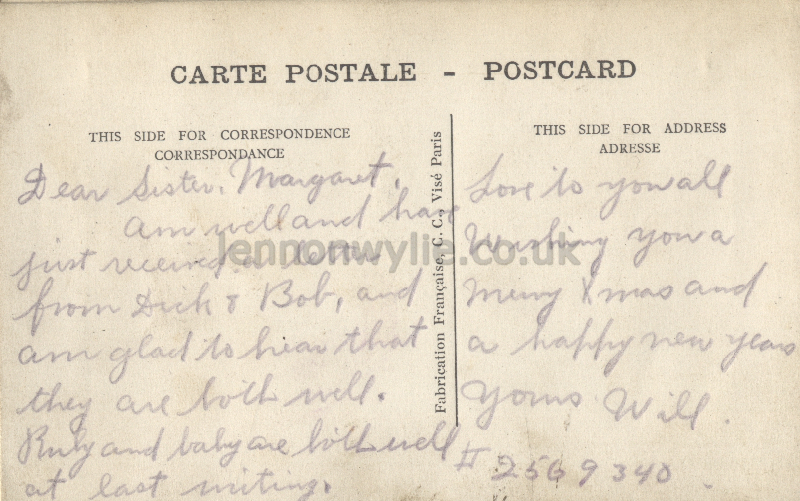 CARTE POSTALE - POSTCARD
THIS SIDE FOR CORRESPONDENCE
CORRESPONDANCE
Dear Sister, Margaret,
am well and have
just received a letter
from Dick & Bob, and
am glad to hear that
they are both well.
Ruby and baby are both well
at last writing.
Fabrication Française, C. C., Visé Paris
THIS SIDE FOR ADDRESS
ADRESSE
Love to you all
Wishing you a
merry Xmas and
a happy new years
yours Will.
# 2569340.
Jennonwylie.co.uk